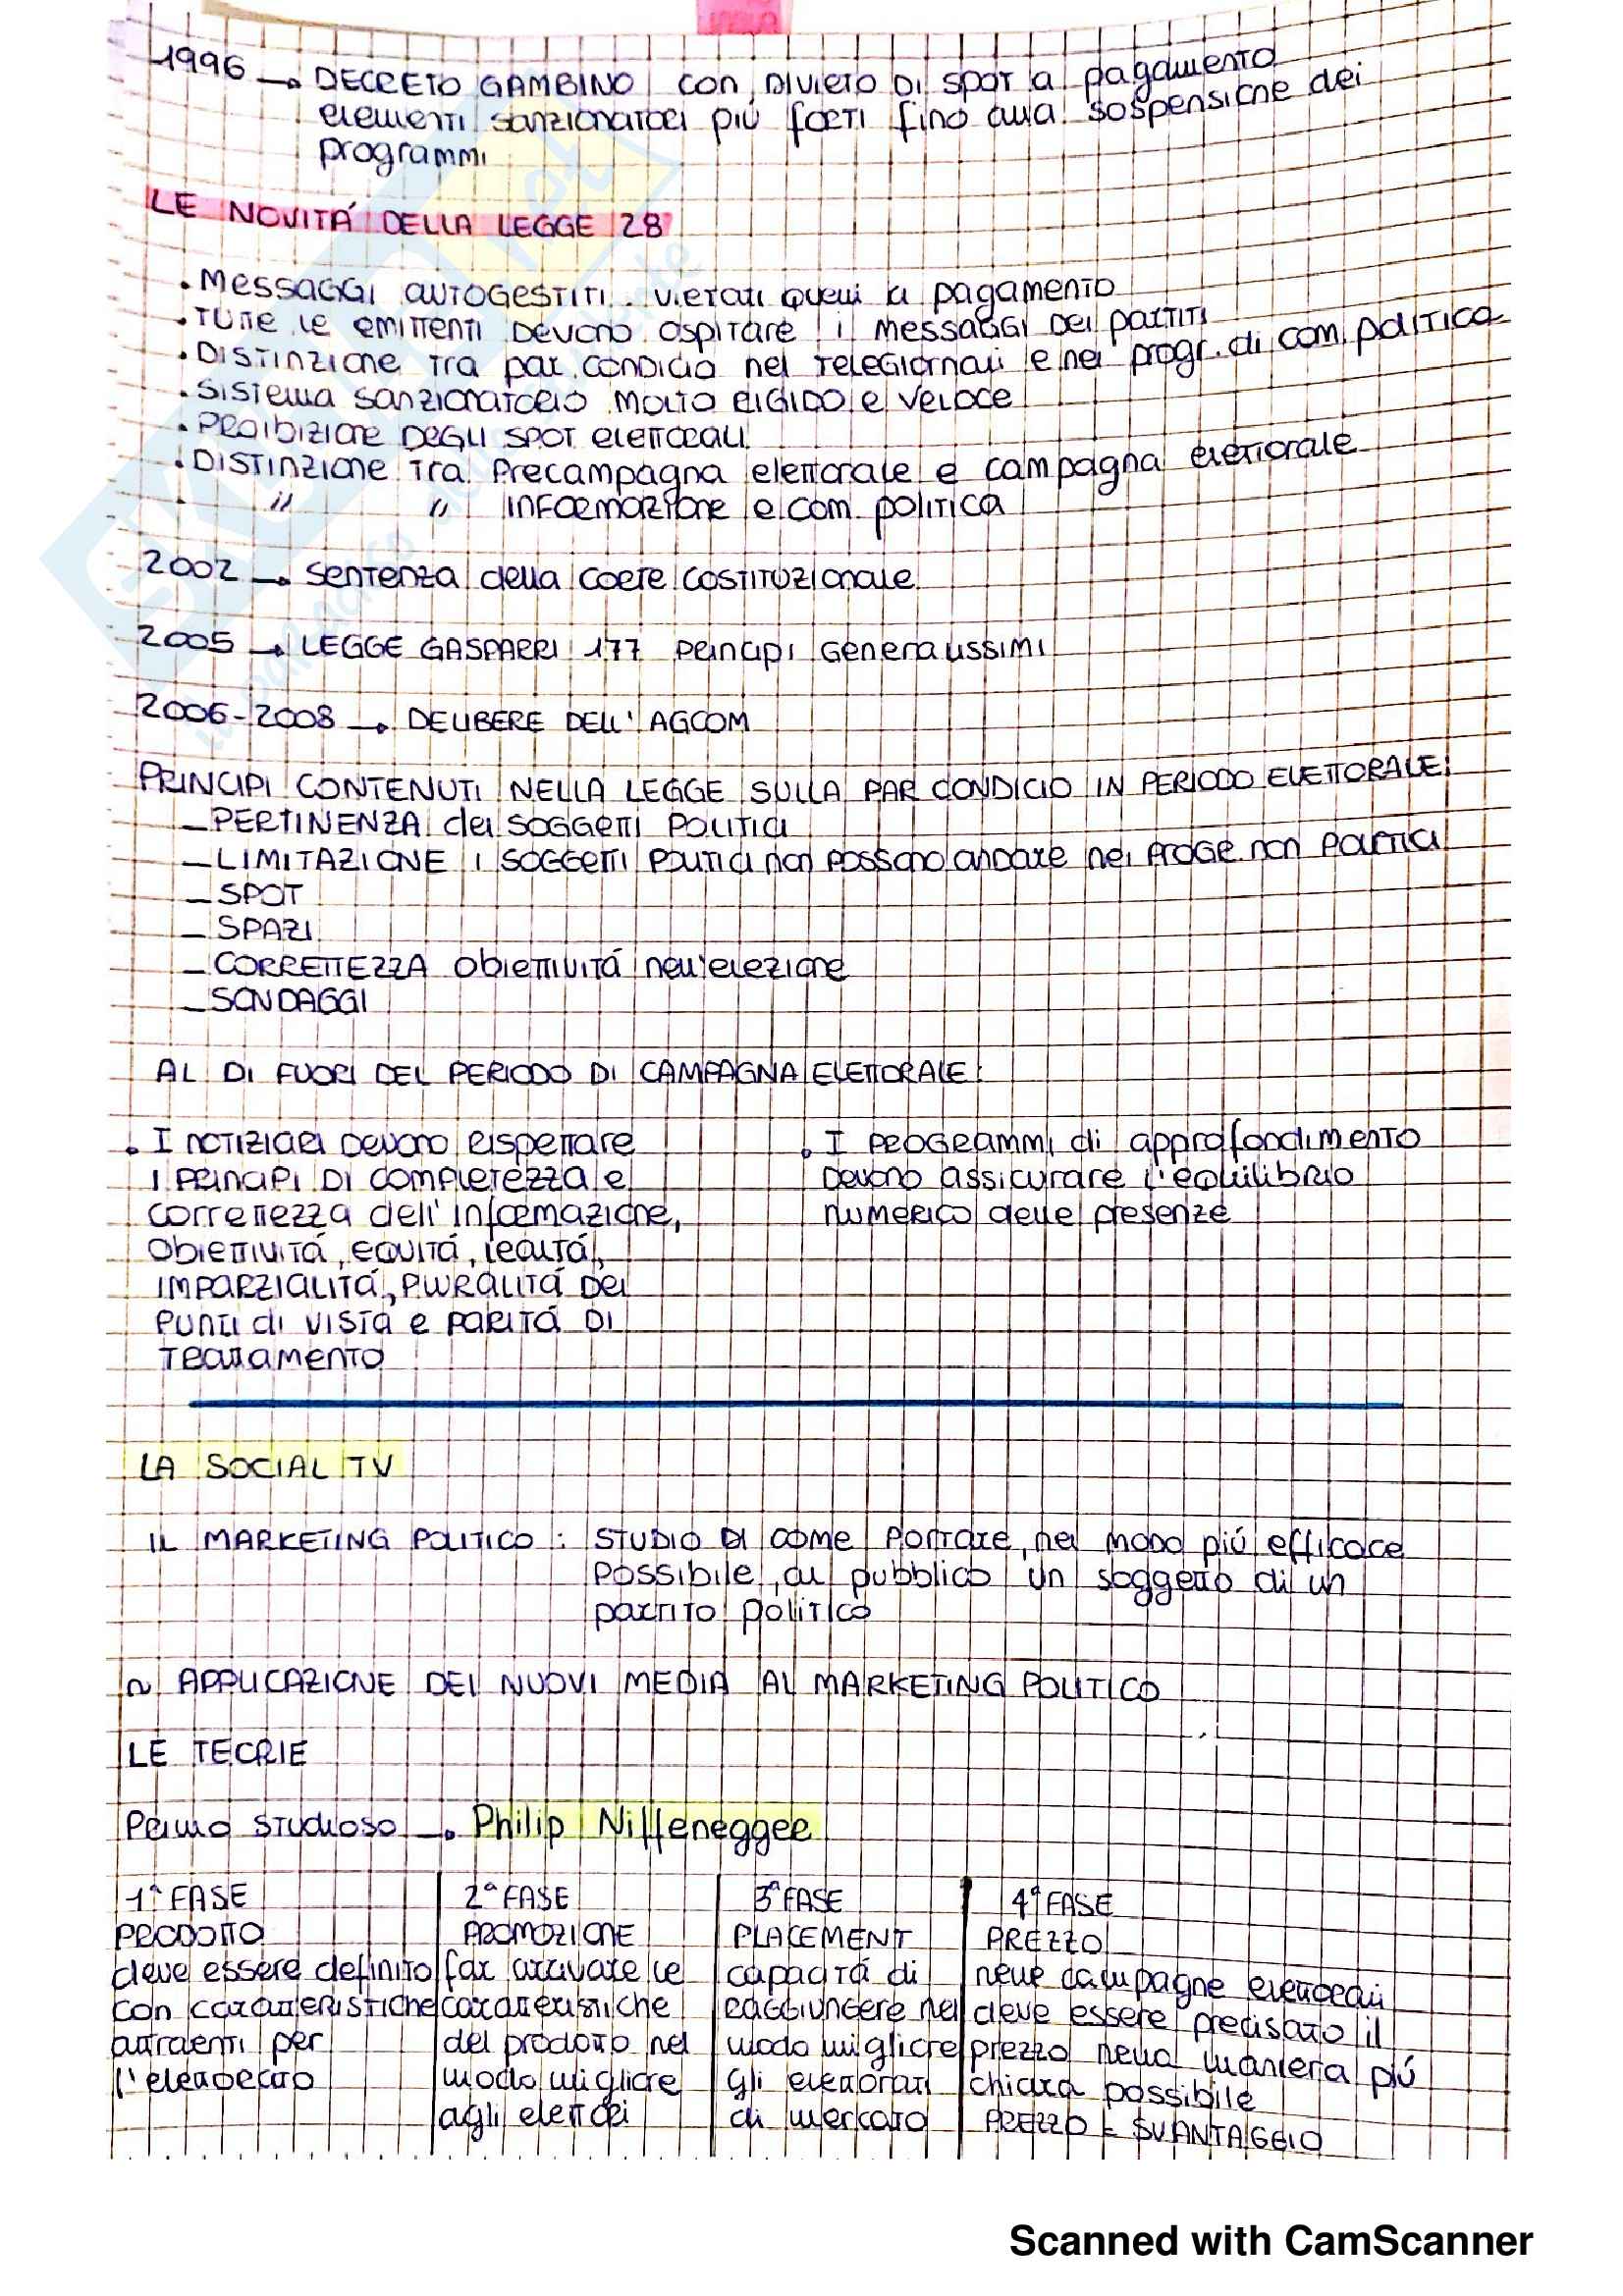 1996 → DECRETO GAMBINO con DIVIETO DI SPOT a pagamento
elementi sanzionatori più forti fino alla sospensione dei
programmi
LE NOVITÁ DELLA LEGGE 28
• MESSAGGI AUTOGESTITI. vietati quelli a pagamento
• TUTTE le emittenti DEVONO ospitare i MESSAGGI DEI PARTITI
• DISTINZIONE TRA par condicio nei TELEGIORNALI e nei progr. di com. politica
• SISTEMA SANZIONATORIO MOLTO RIGIDO e VELOCE
• PROIBIZIONE DEGLI SPOT ELETTORALI
• DISTINZIONE TRA Precampagna elettorale e campagna elettorale
• " " INFORMAZIONE e com. politica
2002 → SENTENZA della CORTE COSTITUZIONALE
2005 → LEGGE GASPARRI 177 PRINCIPI Generalissimi
2006-2008 → DELIBERE DELL'AGCOM
PRINCIPI CONTENUTI NELLA LEGGE SULLA PAR CONDICIO IN PERIODO ELETTORALE:
– PERTINENZA dei SOGGETTI POLITICI
– LIMITAZIONE i SOGGETTI POLITICI non POSSONO andare nei PROGR. non POLITICI
– SPOT
– SPAZI
– CORRETTEZZA Obiettivitá nell'elezione
– SONDAGGI
AL DI FUORI DEL PERIODO DI CAMPAGNA ELETTORALE:
• I NOTIZIARI DEVONO RISPETTARE
I PRINCIPI DI COMPLETEZZA e
correttezza dell'informazione,
Obiettivitá, equitá, lealtá,
IMPARZIALITÁ, PLURALITÁ DEI
PUNTI di VISTA e PARITÁ DI
TRATTAMENTO
• I PROGRAMMI di approfondimento
DEVONO assicurare l'equilibrio
numerico delle presenze
LA SOCIAL TV
IL MARKETING POLITICO : STUDIO DI COME PORTARE, nel modo piú efficace
POSSIBILE, al pubblico un soggetto di un
partito politico
~ APPLICAZIONE DEI NUOVI MEDIA AL MARKETING POLITICO
LE TEORIE
Primo studioso → Philip Niffenegger
1ª FASE
PRODOTTO
deve essere definito
con caratteristiche
attraenti per
l'elettorato
2ª FASE
PROMOZIONE
far arrivare le
caratteristiche
del prodotto nel
modo migliore
agli elettori
3ª FASE
PLACEMENT
capacitá di
raggiungere nel
modo migliore
gli elettorati
di mercato
4ª FASE
PREZZO
nelle campagne elettorali
deve essere precisato il
prezzo nella maniera piú
chiara possibile
PREZZO = SVANTAGGIO
Scanned with CamScanner